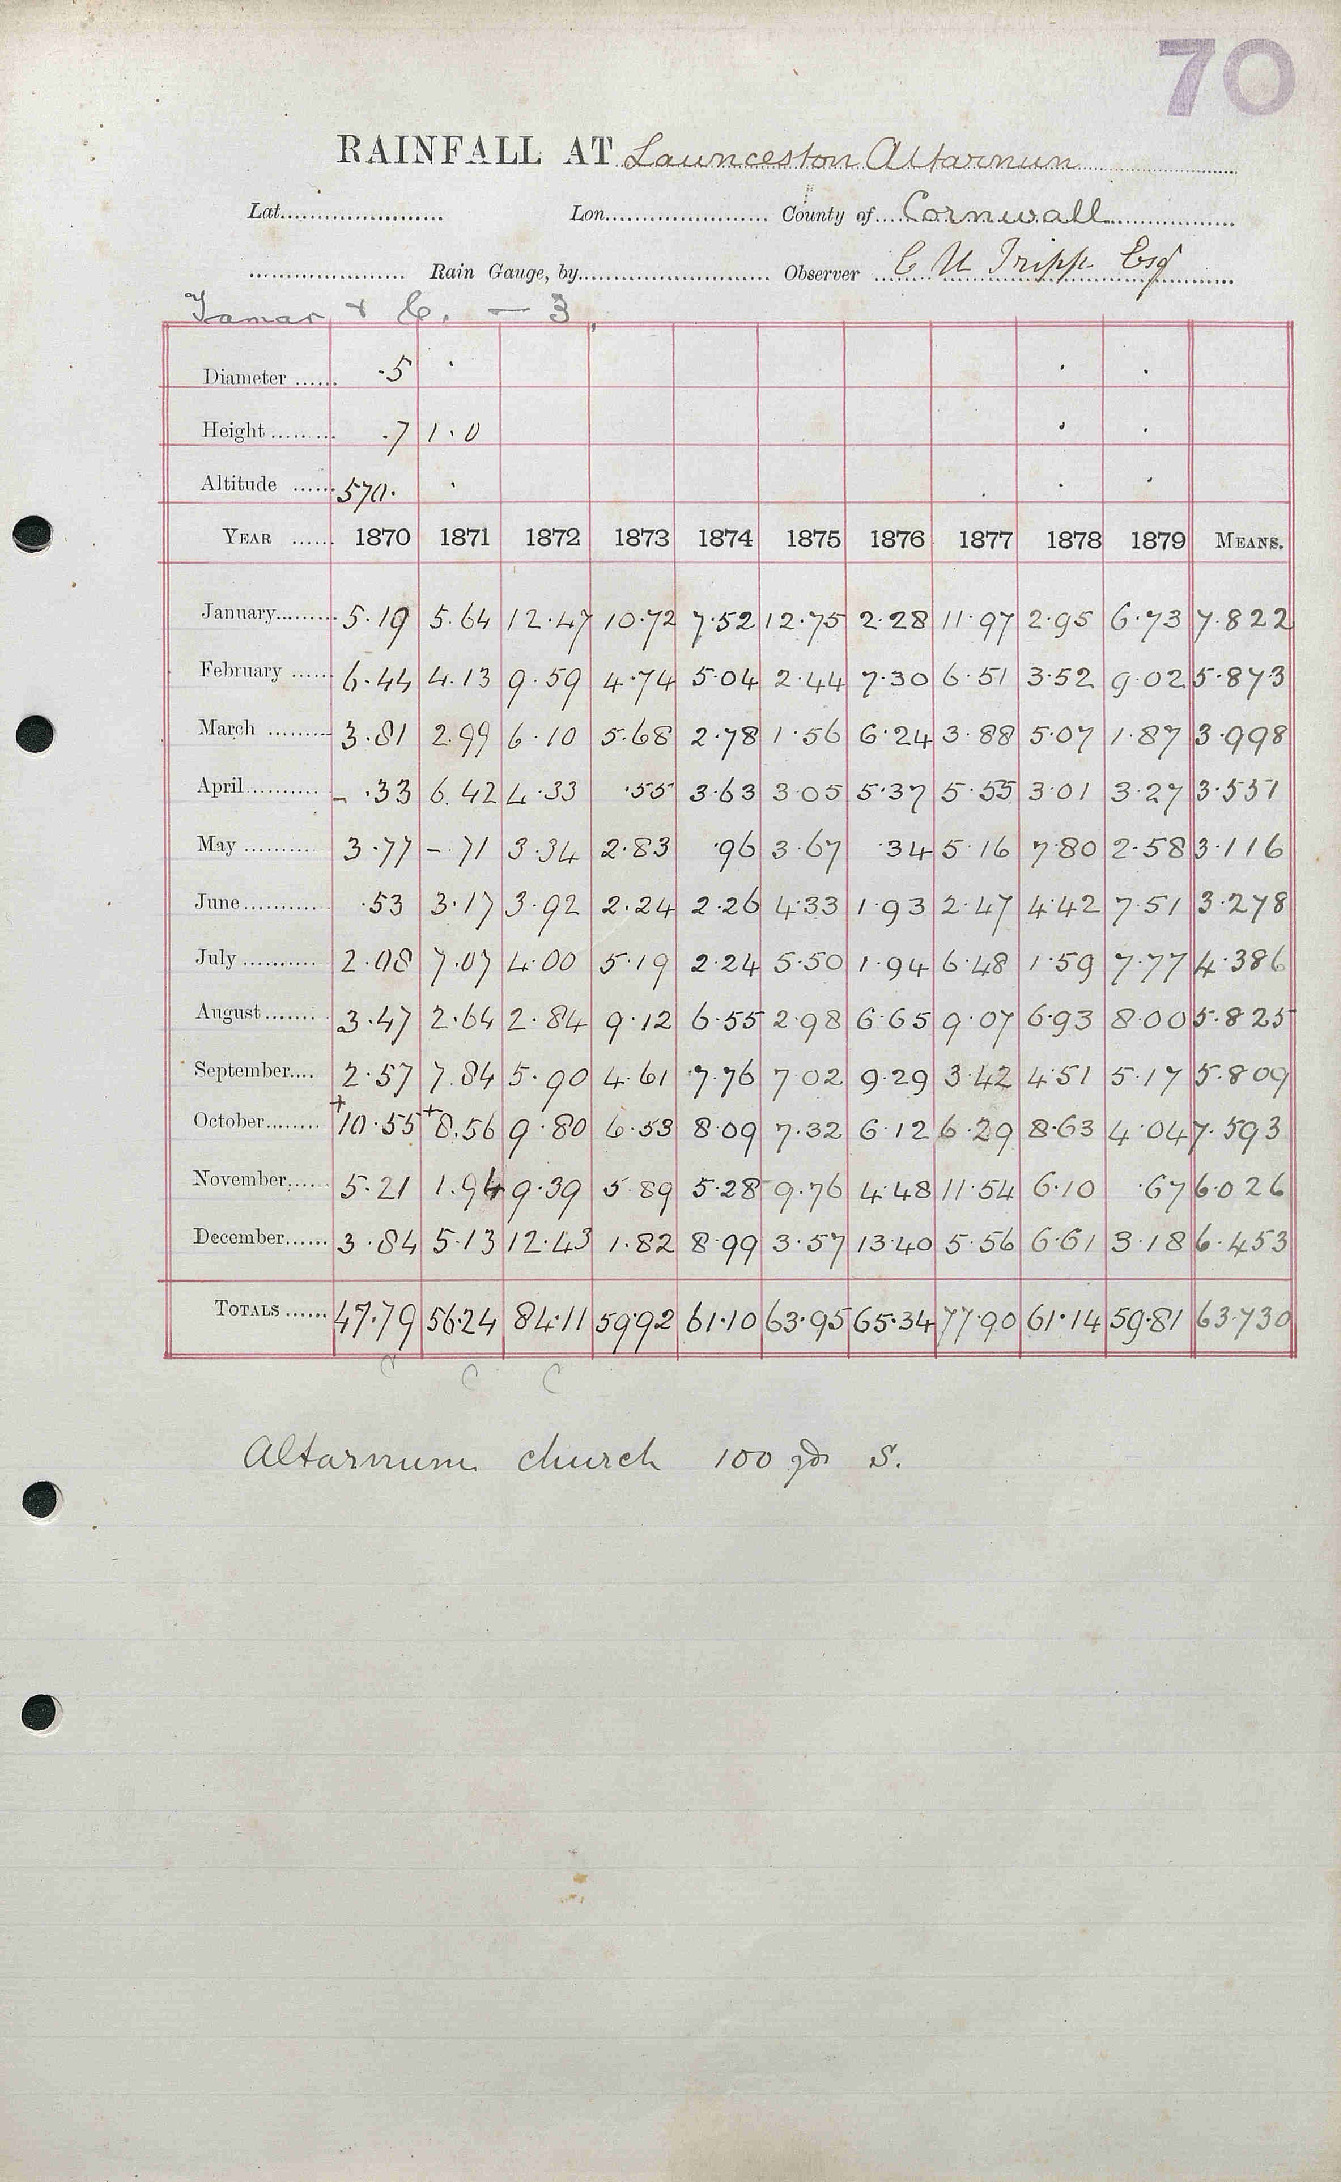 70
RAINFALL AT Launceston Altarnun
Lat. Lon. County of Cornwall
Rain Gauge, by Observer C U Tripp Esq
Tamar & C. — 3
Diameter .5
Height .7 1.0
Altitude 570.
YEAR 1870 1871 1872 1873 1874 1875 1876 1877 1878 1879 MEANS.
January 5.19 5.64 12.47 10.72 7.52 12.75 2.28 11.97 2.95 6.73 7.822
February 6.44 4.13 9.59 4.74 5.04 2.44 7.30 6.51 3.52 9.02 5.873
March 3.81 2.99 6.10 5.68 2.78 1.56 6.24 3.88 5.07 1.87 3.998
April - .33 6.42 4.33 .55 3.63 3.05 5.37 5.55 3.01 3.27 3.551
May 3.77 - .71 3.34 2.83 .96 3.67 .34 5.16 7.80 2.58 3.116
June .53 3.17 3.92 2.24 2.26 4.33 1.93 2.47 4.42 7.51 3.278
July 2.08 7.07 4.00 5.19 2.24 5.50 1.94 6.48 1.59 7.77 4.386
August 3.47 2.64 2.84 9.12 6.55 2.98 6.65 9.07 6.93 8.00 5.825
September 2.57 7.84 5.90 4.61 7.76 7.02 9.29 3.42 4.51 5.17 5.809
October +10.55 +8.56 9.80 6.53 8.09 7.32 6.12 6.29 8.63 4.04 7.593
November 5.21 1.94 9.39 5.89 5.28 9.76 4.48 11.54 6.10 .67 6.026
December 3.84 5.13 12.43 1.82 8.99 3.57 13.40 5.56 6.61 3.18 6.453
TOTALS 47.79 56.24 84.11 59.92 61.10 63.95 65.34 77.90 61.14 59.81 63.730
C C C
Altarnum church 100 yds S.